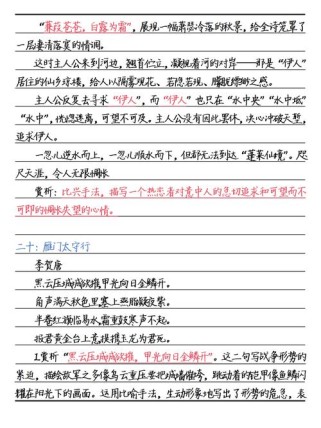 “蒹葭苍苍，白露为霜”，展现一幅萧瑟冷落的秋景，给全诗笼罩了
一层凄清落寞的情调。
这时主人公来到河边，翘首伫立，凝视着河的对岸——那是“伊人”
居住的仙乡琼楼，给人以隔雾观花、若隐若现、朦胧缥缈之感。
主人公反复去寻求“伊人”，而“伊人”也只在“水中央”“水中坻”
“水中”，恍惚迷离，可望不可及。主人公没有因此罢休，决心冲破天堑，
追求伊人。
一忽儿逆水而上，一忽儿顺水而下，但都无法到达“蓬莱仙境”。咫
尺天涯，令人无限惆怅
赏析：比兴手法，描写一个热恋者对意中人的急切追求和可望而不
可即的惆怅失望的心情。
二十：雁门太守行
李贺唐
黑云压城城欲摧，甲光向日金鳞开。
角声满天秋色里，塞上燕脂凝夜紫。
半卷红旗临易水，霜重鼓寒声不起。
报君黄金台上意，提携玉龙为君死。
1.赏析“黑云压城城欲摧，甲光向日金鳞开”。这二句写战争形势的
紧迫，描绘敌军之多像乌云重压要把城墙摧垮，跳动着的铠甲像鱼鳞闪
耀在阳光下的画面。这用比喻手法，生动形象地写出了形势的危急，表